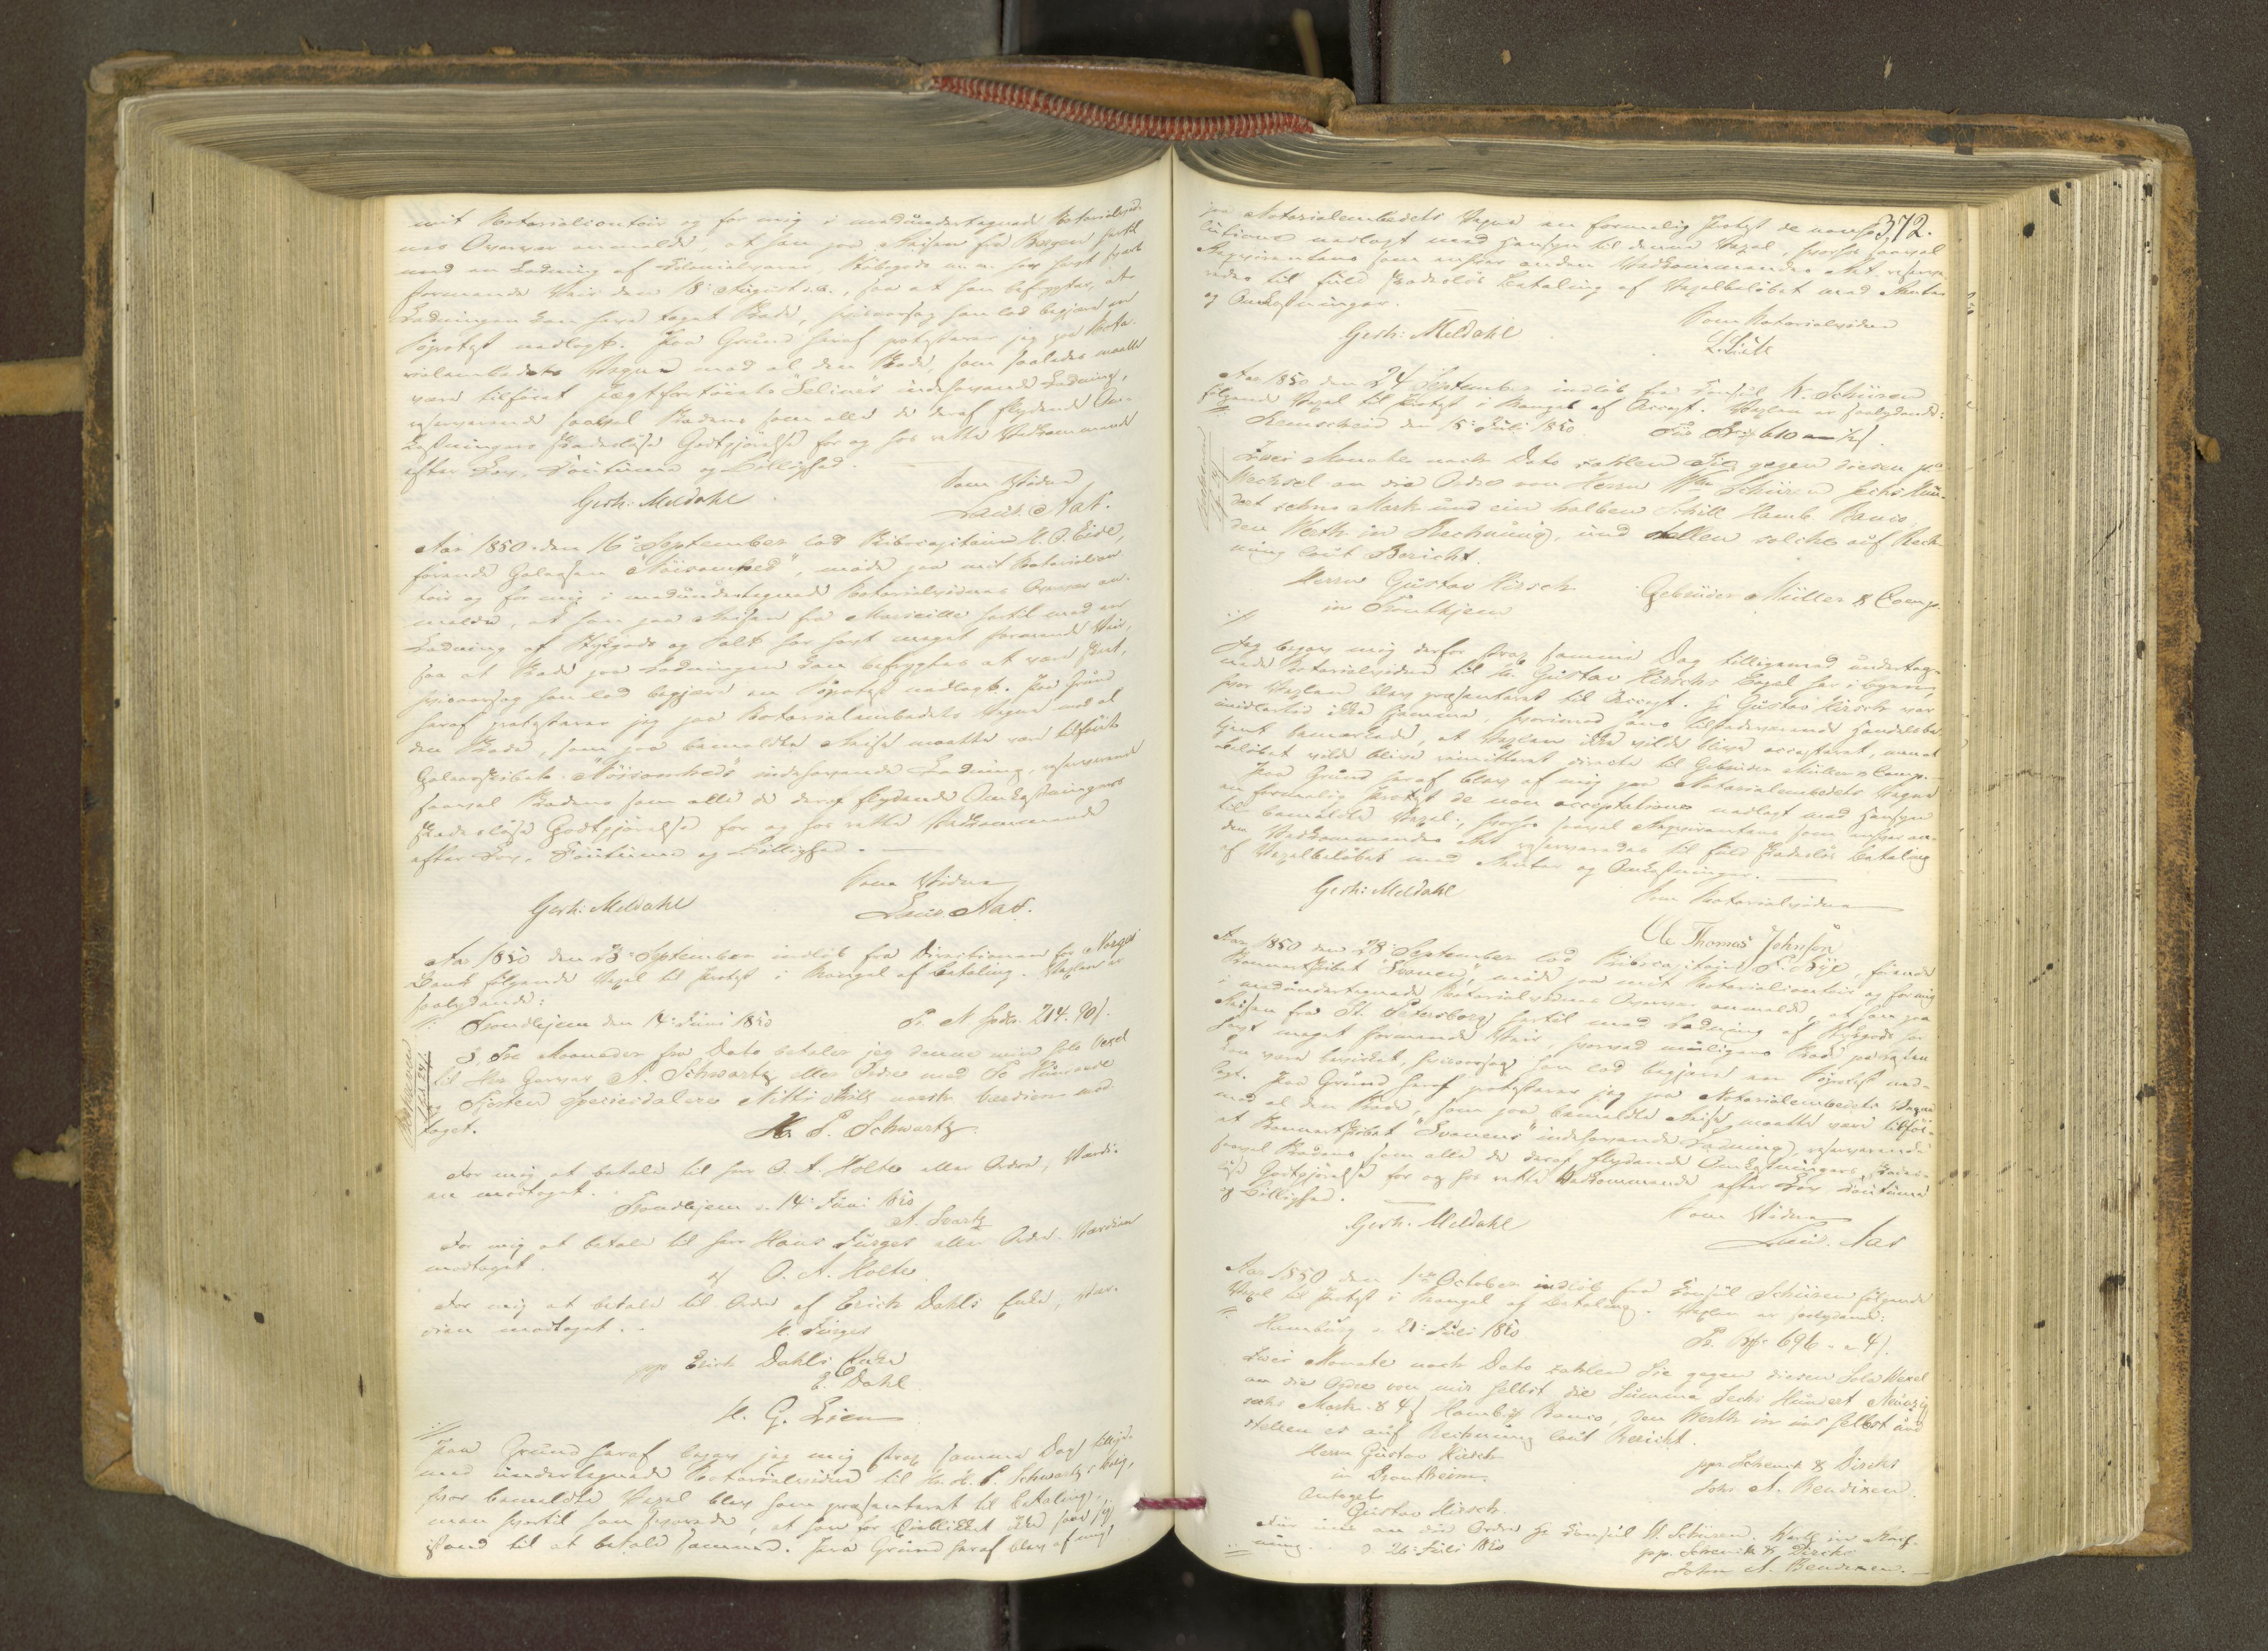 mit Notarialcontoir og for mig i medundertegnede Notarialvid-
nes Overvær anmeldte, at han paa Reisen fra Bergen hertil
med en Ladning af Colonialvarer, Stükgods m. m. har havt svært
stormende Veir den 18: August d. A., saa at han befrygter, at
Ladningen kan have taget Skade, hvisaarsag han lod begjære en
Søprotest nedlagt. Paa Grund heraf protesterer jeg paa Nota-
rialembedets Vegne mod al den Skade, som saaledes maatte
være tilføiet Jægtfartøiets "Selines" indehavende Ladning,
reserverende saavel Skadens som alle de deraf flydende Om-
kostningers skadesløse Godtgjørelse for og hos rette Vedkommende
efter Lov, Coutume og Billighed.
Som Vidne
Gerh: Meldahl
Laur. Aas.
Aar 1850 den 16: September lod Skibscapitain
førende Galeasen "Nøisomhed", møde paa mit Notarialcon-
toir og for mig i medundertegnede Notarialvidnes Overvær an-
meldte, at han paa Reisen fra Marseille hertil med en
Ladning af Stykgods og Salt har havt meget stormende Veir,
saa at Skade paa Ladningen kan befrygtes at være skeet,
hvisaarsag han lod begjære en Søprotest nedlagt. Paa Grund
heraf protesterer jeg paa Notarialembedets Vegne mod al
den Skade, som paa bemeldte Reise maatte være tilføiet
Galeasskibets "Nøisomheds" indehavende Ladning, reserverende
saavel Skadens som alle de deraf flydende Omkostningers
skadesløse Godtgjørelse for og hos rette Vedkommende
efter Lov, Coutume og Billighed.
Som Vidne
Gerh: Meldahl
Laur. Aas.
Aar 1850 den 23: September indløb fra Directionen for Norges
Bank følgende Vexel til Protest i Mangel af Betaling. Vexlen er
saalydende:
Trondhjem den 14: Juni 1850
214. 90
3, Tre Maaneder fra Dato betaler jeg denne min Sola Vexel
til Her Garver A. Schwartz eller Ordre med To Hundrede
og Fjorten Speciesdaler Nitti Skill norsk. Værdien mod-
taget.
H. P. Schwartz
For mig at betale til Herr O. A. Holte eller Ordre, Værdi-
en modtaget.
Trondhjem d. 14: Juni 1850
A. Svartz
For mig at betale til Herr Hans Jürges eller Ordre. Værdien
modtaget.
O. A. Holte
For mig at betale til Ordre af Erich Dahls Enke, Vær-
dien modtaget.
H. Jürges
pp Erich Dahls Enke
E. Dahl
H. G. Lien
Paa Grund heraf begav jeg mig strax samme Dag tillige-
med undertegnede Notarialvidne til Hr. H. P. Schwartz's Bolig,
hvor bemeldte Vexel blev ham præsenteret til Betaling,
men hvortil han svarede, at han for Øieblikket ikke saae sig
istand til at betale samme. Paa Grund heraf blev af mig
372.
paa Notarialembedets Vegne en formelig Protest de non so-
lutione nedlagt med Hensyn til denne Vexel, hvorfor saavel
Reqvirentens som enhver anden Vedkommendes Ret reserve-
redes til fuld skadesløs Betaling af Vexelbeløbet med Renter
og Omkostninger.
Som Notarialvidne
Gerh: Meldahl
Aar 1850 den 24 September indløb fra Consul W. Schüren
følgende Vexel til Protest i Mangel af Accept. Vexlen er saalydende:
Remscheid den 15: Juli 1850
610
Zwei Monate nach Dato zahlen Sie gegen diesen
Wechsel an die Ordre von Herrn Wm Schüren Sechs Hun-
dert zehns Mark und ein halben Schill. Hamb. Banco,
den Werth in Rechnung, und stellen solche auf Rech-
nung laut Bericht.
Herrn Gustav Hirsch
Gebrüder Müller & Comp.
in Tronthjem
Jeg begav mig derfor strax samme Dag tilligemed undertegn-
nede Notarialvidne til Hr. Gustav Hirschs Bopæl her i Byen,
hvor Vexlen blev præsenteret til Accept. Hr Gustav Hirsch var
imidlertid ikke hjemme, hvorimod hans tilstedeværende Handelsbe-
tjent bemærkede, at Vexlen ikke vilde blive accepteret, men at
Beløbet vilde blive remitteret directe til Gebrüder Müller & Comp.-
Paa Grund heraf blev af mig paa Notarialembedets Vegne
en formelig Protest de non acceptatione nedlagt med Hensyn
til bemeldte Vexel, hvorfor saavel Reqvirentens som enhver an-
den Vedkommendes Ret reserveredes til fuld skadesløs Betaling
af Vexelbeløbet med Renter og Omkostninger.
Som Notarialvidne
Gerh: Meldahl
Ole Thomas Johnsen
Aar 1850 den 28: September lod Skibscapitain, førende
Skonnertskibet "Svanen", møde paa mit Notarialcontoir og for mig
i medundertegnede Notarialvidnes Overvær anmeldte, at han paa
Reisen fra St. Petersborg hertil med Ladning af Stykgods har
havt meget stormende Veir, hvorved muligens Skade paa Lasten
kan være bevirket, hvisaarsag han lod begjære en Søprotest ned-
lagt. Paa Grund heraf protesterer jeg paa Notarialembedets Vegne
mod al den Skade, som paa bemeldte Reise maatte være tilføi-
et Skonnertskibet "Svanens" indehavende Ladning, reserverende
saavel Skadens som alle de deraf flydende Omkostningers skades-
løse Godtgjørelse for og hos rette Vedkommende efter Lov, Coutume
og Billighed.
Som Vidne
Gerh. Meldahl
Laur. Aas
Aar 1850 den 1ste October indløb fra Consul Schüren følgende
Vexel til Protest i Mangel af Betaling. Vexlen er saalydende:
Hamburg d. 21: Juli 1850
696 - 4
Zwei Monate nach Dato zahlen Sie gegen diesen Sola Wexel
an die Ordre von mir selbst die Summa Sechs Hundert Neunzig
sechs Mark & 4 Hambg Banco, den Werth in mir selbst und
stellen es auf Rechnung laut Bericht.
Herrn Gustav Hirsch
ppa. Schenck & Dircks
in Drontheim.
John A. Bendixen.
Antaget
Gustav Hirsch
Für mir an die Ordre Hr Consul W. Schüren. Werth in Rech-
nung.
d. 26: Juli 1850
ppa. Schenck & Dircks
John A. Bendixen.